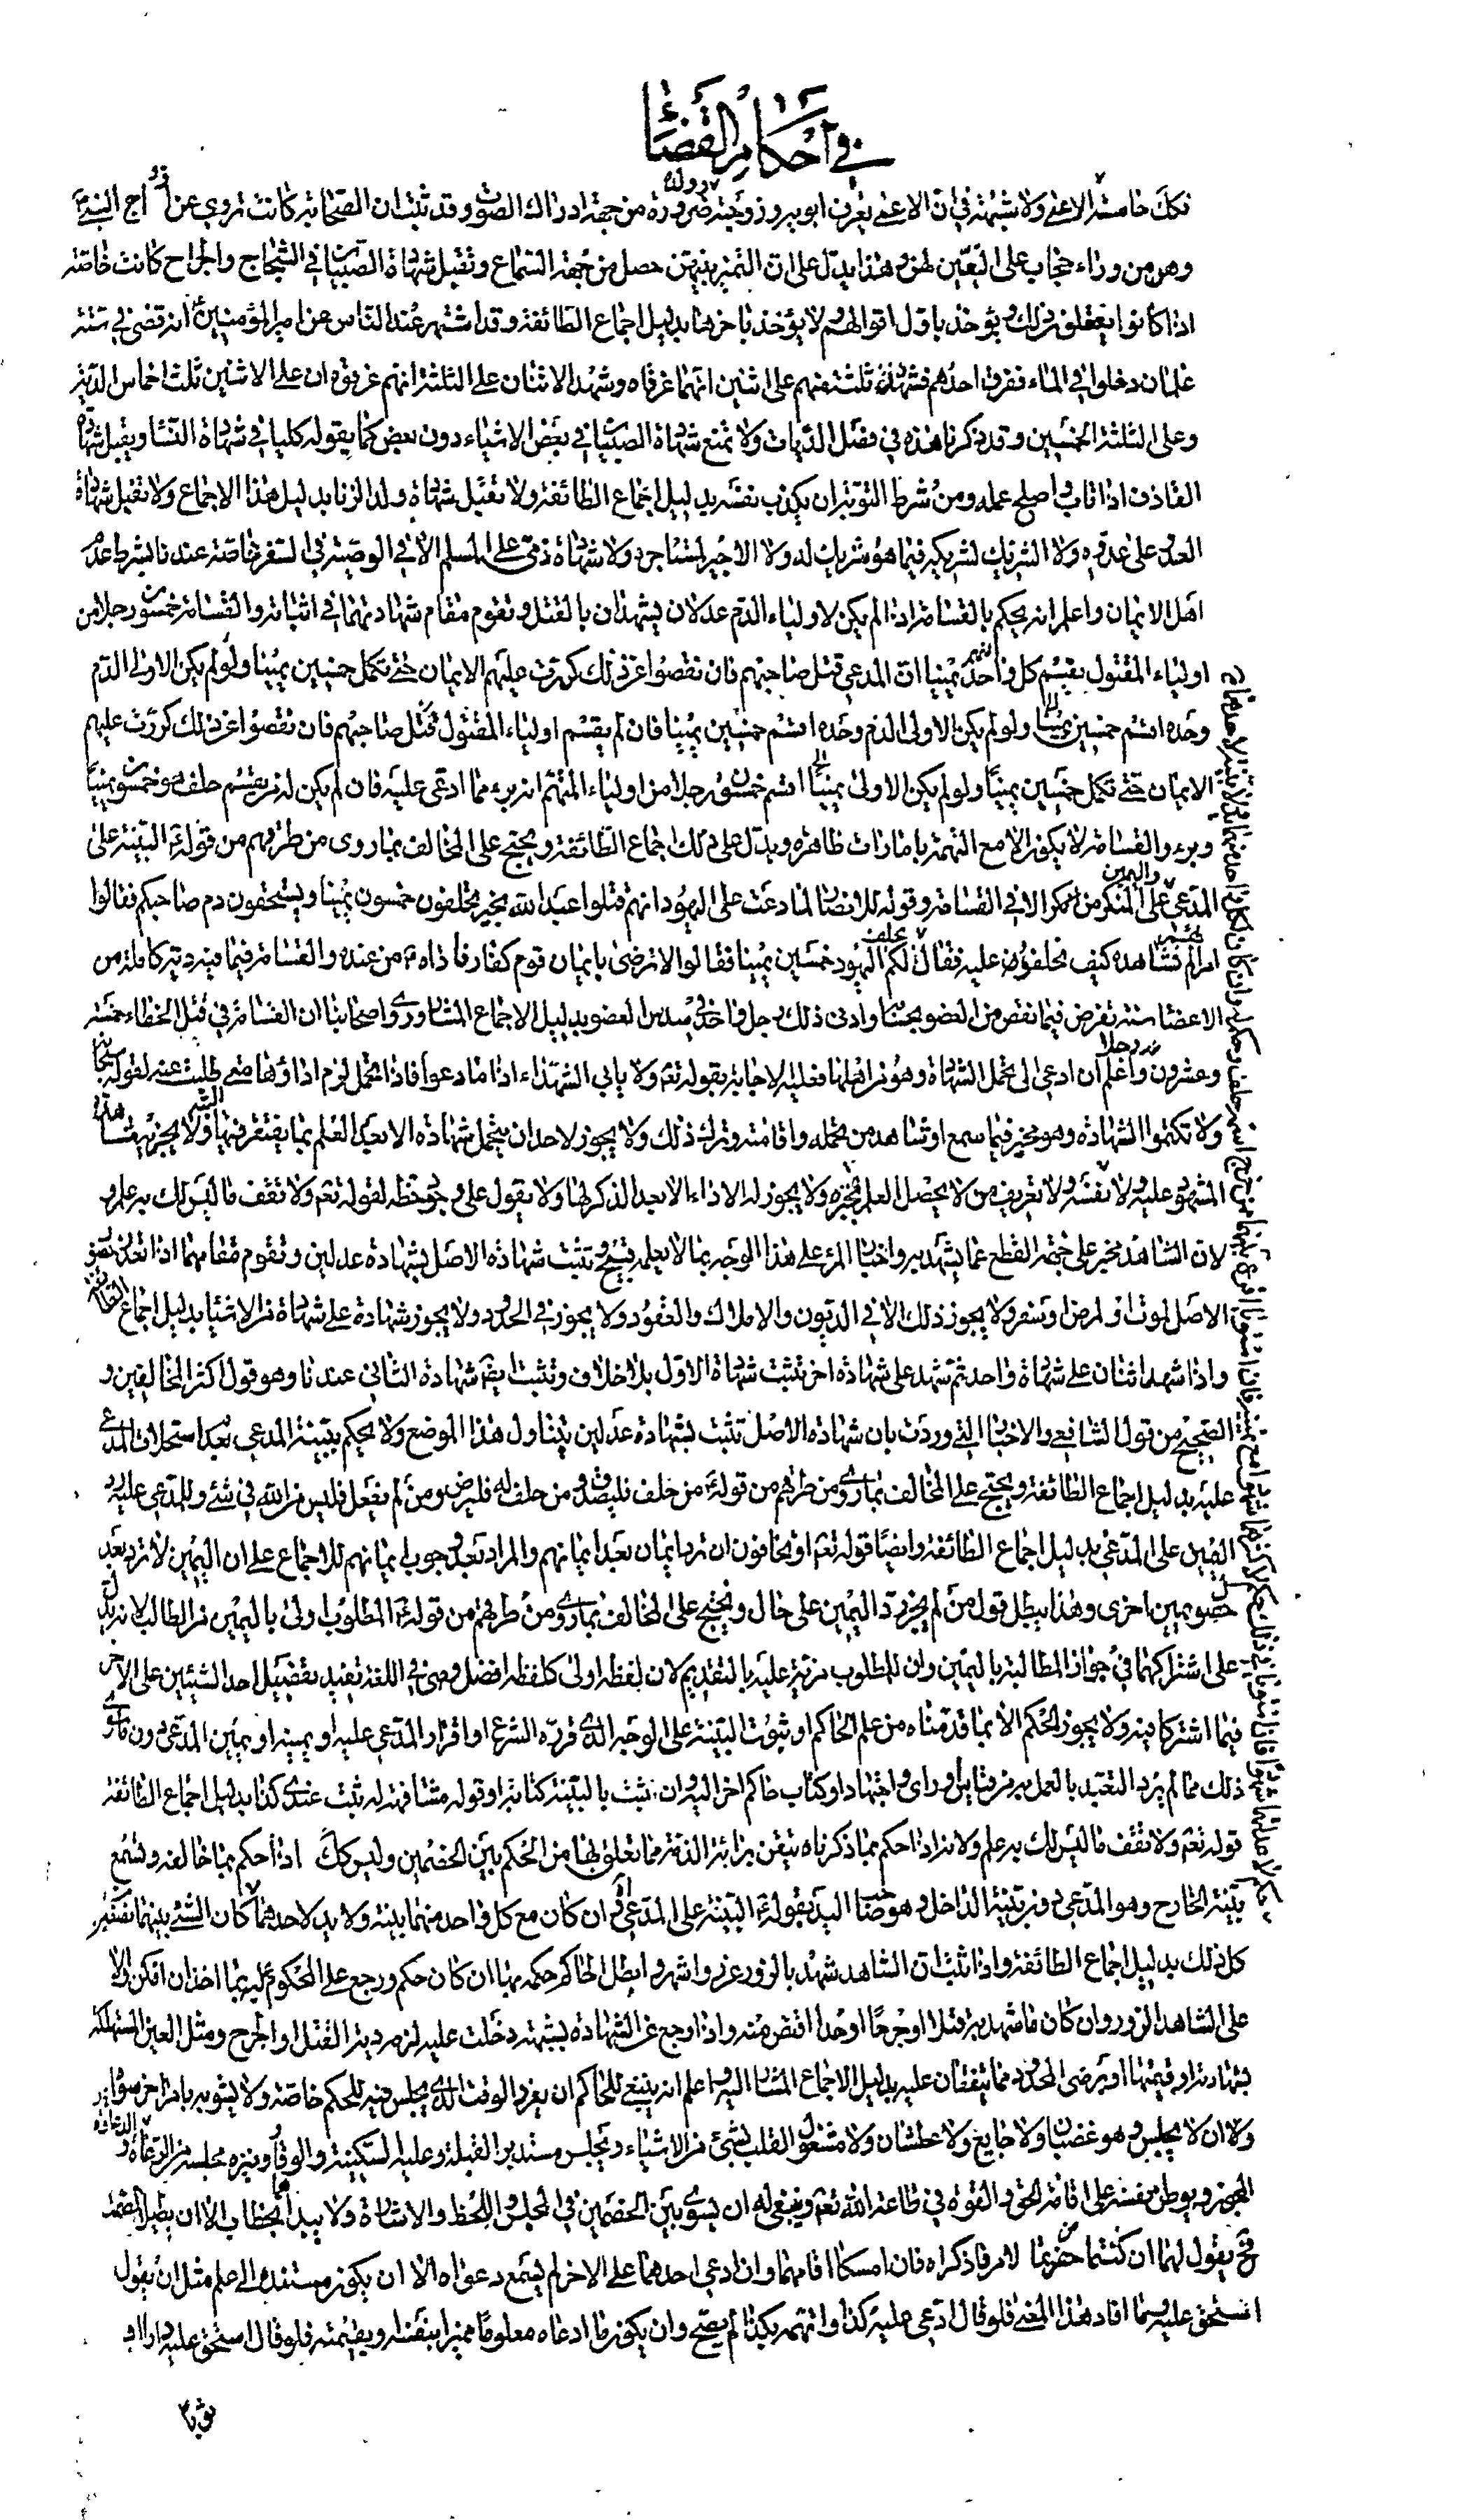 في أحكام القضاء
ذلك خاصة الاعمى ولا شبهة في ان الاعمى يعرف ابويه وزوجته وولده ضرورة من جهة ادراك الصوت وقد ثبت ان الصحابة كانت تروي عن ازواج النبي
وهن من وراء حجاب على التعيين لهن وهذا يدل على ان التميز بينهن حصل من جهة السماع وتقبل شهادة الصبيان في الشجاج والجراح كانت خاصة
اذا كانوا يعقلون ذلك ويؤخذ باول اقوالهم ولا يؤخذ باخرها بدليل اجماع الطائفة وقد اشتهر عند الناس عن امير المؤمنين انه قضى في ستة
غلمان دخلوا في الماء فغرق احدهم فشهد ثلثة منهم على اثنين انهما غرقاه وشهد الاثنان على الثلثة انهم غرقوه ان على الاثنين ثلث اخماس الدية
وعلى الثلثة الخمسين وقد ذكرنا هذه في فصل الديات ولا تمنع شهادة الصبيان في بعض الاشياء دون بعض كما يقوله كلنا في شهادة النساء ويقبل شهادة
القاذف اذا تاب واصلح عمله ومن شرط التوبة ان يكذب نفسه بدليل اجماع الطائفة ولا تقبل شهادة ولد الزنا بدليل هذا الاجماع ولا تقبل شهادة
العدو على عدوه ولا الشريك لشريكه فيما هو شريك له ولا الاجير لمستاجره ولا شهادة ذمي على المسلم الا في الوصية في السفر خاصة عندنا بشرط عدم
اهل الايمان واعلم انه يحكم بالقسامة اذا لم يكن لاولياء الدم عدلان يشهدان بالقتل وتقوم مقام شهادتهما في اثباته والقسامة خمسون رجلا من
اولياء المقتول يقسم كل واحد منهم يمينا ان المدعى قتل صاحبهم فان نقصوا عن ذلك كررت عليهم الايمان حتى تكمل خمسين يمينا ولو لم يكن الا ولي الدم
وحده اقسم خمسين يمينا ولو لم يكن الا ولي الدم وحده اقسم خمسين يمينا فان لم يقسم اولياء المقتول قتل صاحبهم فان نقصوا عن ذلك كررت عليهم
الايمان حتى تكمل خمسين يمينا ولو لم يكن الا ولي يمينا اقسم خمسون رجلا من اولياء المتهم انه برئ مما ادعى عليه فان لم يكن له من يقسم حلف هو خمسون يمينا
وبرء والقسامة لا يكون الا مع التهمة بامارات ظاهرة ويدل على ذلك اجماع الطائفة ويحتج على المخالف بما روى من طرقهم من قوله البينة على
المدعي واليمين على المنكر من انكر الا في القسامة وقوله للانصار لما دعت على اليهود انهم قتلوا عبد الله بخيبر تحلفون خمسون يمينا وتستحقون دم صاحبكم فقالوا
امر لم نشاهده كيف نحلف عليه فقال يحلف لكم اليهود خمسين يمينا فقالوا لا نرضى بايمان قوم كفار فاداه من عنده والقسامة فيما فيه دية كاملة من
الاعضا ستة نفر ض فيما نقص من العضو بحسابه وادنى ذلك رجل واحد في سدس العضو بدليل الاجماع المشار وروى اصحابنا ان القسامة في قتل الخطاء خمسة
وعشرون رجلا واعلم ان ادعي الى تحمل الشهادة وهو من اهلها فعليه الاجابة بقوله تعم ولا ياب الشهداء اذا ما دعوا فاذا تحمل لزم اداؤها متى طلبت منه لقوله سبحانه
ولا تكتموا الشهادة وهو مخير فيما سمع او شاهد من تحمله واقامته وترك ذلك ولا يجوز لاحد ان يتحمل شهادة الا بعد العلم بما يفتقر فيها ولا يجزيه مشاهدة
المشهود عليه ولا نفسه ولا تعريف من لا يحصل العلم بخبره ولا يجوز له الاداء الا بعد الذكر لها ولا يقول على وجود خطه لقوله تعم ولا تقف ما ليس لك به علم و
لان الشاهد مخبر على جهة القطع عما يشهد به واخبار المرء على هذا الوجه بما لا يعلمه قبيح وتثبت شهادة الاصل بشهادة عدلين وتقوم مقامهما اذا تعذر حضور
الاصل لموت او لمرض او سفر ولا يجوز ذلك الا في الديون والاملاك والعقود ولا يجوز في الحدود ولا يجوز شهادة على شهادة في الاشياء بدليل اجماع الطائفة
واذا شهد اثنان على شهادة واحد ثم شهد على شهادة اخر تثبت شهادة الاول بلا خلاف وتثبت ايضا شهادة الثاني عندنا وهو قول اكثر المخالفين و
الصحيح من قول الشافعي والاخبار التي وردت بان شهادة الاصل تثبت بشهادة عدلين يتناول هذا الموضع ولا يحكم ببينة المدعي بعد استحلاف المدعى
عليه بدليل اجماع الطائفة ويحتج على المخالف بما روى من طرقهم من قوله من حلف فليصدق ومن حلف له فليرض ومن لم يفعل فليس من الله في شئ وللمدعى عليه رد
اليمين على المدعي بدليل اجماع الطائفة وايضا قوله تعم او يخافون ان ترد ايمان بعد ايمانهم والمراد بعد وجوب ايمانهم للاجماع على ان اليمين لا ترد بعد
حصول يمين اخرى وهذا يبطل قول من لم يجز رد اليمين على حال ويحتج على المخالف بما روى من طرقهم من قوله المطلوب اولى باليمين من الطالب لانه يدل
على اشتراكهما في جواز المطالبة باليمين وان للمطلوب مزية عليه بالتقديم لان لفظه اولى كلفظه افضل وهي في اللغة تفيد تفضيل احد الشيئين على الاخر
فيما اشتركا فيه ولا يجوز الحكم الا بما قدمناه من علم الحاكم او ثبوت البينة على الوجه الذي قرره الشرع او اقرار المدعى عليه او يمينه او يمين المدعي دون ما سوى
ذلك مما لم يرد التعبد بالعمل به من قياس او راي واجتهاد او كتاب حاكم اخر اليه وان ثبت بالبينة كتابته او قوله مشافهة له ثبت عندي كذا بدليل اجماع الطائفة
قوله تعم ولا تقف ما ليس لك به علم ولانه اذا حكم بما ذكرناه تيقن برائة الذمة مما تعلق بها من الحكم بين الخصمين وليس كك اذا حكم بما خالفه وتسمع
بينة الخارج وهو المدعي دون بينة الداخل وهو صاحب اليد بقوله البينة على المدعي وان كان مع كل واحد منهما بينة ولا يد لاحدهما كان الشئ بينهما نصفين
كل ذلك بدليل اجماع الطائفة واذا ثبت ان الشاهد شهد بالزور عزر واشهر وابطل الحاكم حكمه بها ان كان حكم ورجع على المحكوم له بما اخذ ان امكن والا
على الشاهد الزور وان كان ما شهد به قتلا او جرحا او حدا اقتص منه واذا رجع عن الشهادة بشبهة دخلت عليه لزمه دية القتل او الجرح ومثل العين المستهلكة
بشهادته او قيمتها او يرضى المحدود بما يتفقان عليه بدليل الاجماع المشار اليه واعلم انه ينبغي للحاكم ان يفرد الوقت الذي يجلس فيه للحكم خاصة ولا يشوبه بامر اخر سواه
ولا ان لا يجلس وهو غضبان ولا جايع ولا عطشان ولا مشغول القلب بشئ من الاشياء ويجلس مستدبر القبلة وعليه السكينة والوقار وينزه مجلسه من الدعابة و
المجون ويوطن نفسه على اقامة الحق والقوة في طاعة الله تعم وينبغي له ان يسوي بين الخصمين في المجلس واللحظ والاشارة ولا يبدأهما بخطاب الا ان يطيلا الصمت
فح يقول لهما ان كنتما حضرتما لامر فاذكراه فان امسكا اقامهما وان ادعى احدهما على الاخر لم يسمع دعواه الا ان يكون مستندة الى علم مثل ان يقول
استحق عليه وما افاد هذا المعنى فلو قال ادعي عليه كذا او اتهمه بكذا لم يصح وان يكون ما ادعاه معلوما متميزا بنفسه وبقيمته فلو قال استحق عليه دارا او
ثوبا